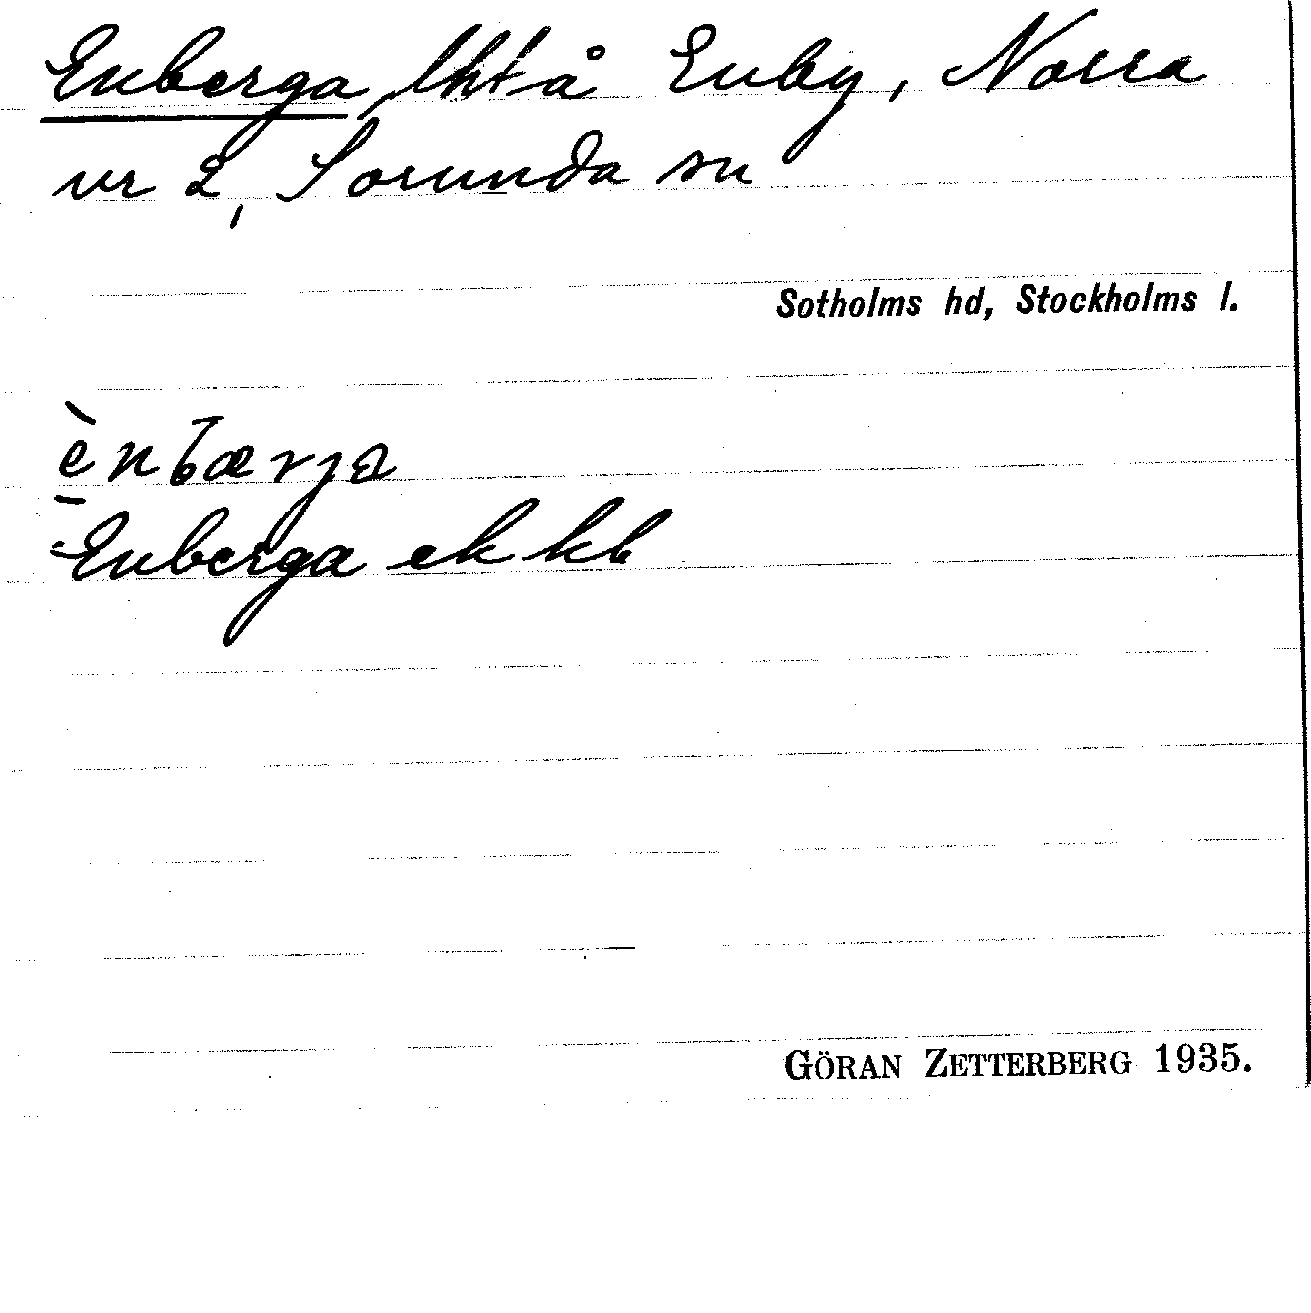 Enberga, lht å Enby, Norra
nr 2, Sorunda sn
Sotholms hd, Stockholms l.
Enberga ek kb
GÖRAN ZETTERBERG 1935.